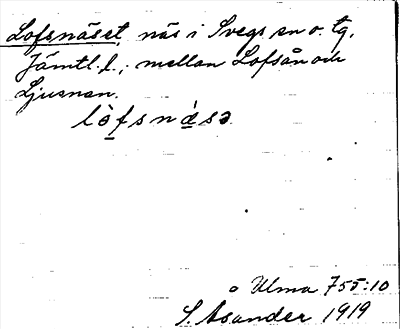 Lofsnäset, näs i Svegs sn o. tg,
Jämtl. l., mellan Lofsån och
Ljusnan.
lòfsnǽsə
Ulma 755:10
S. Asander 1919